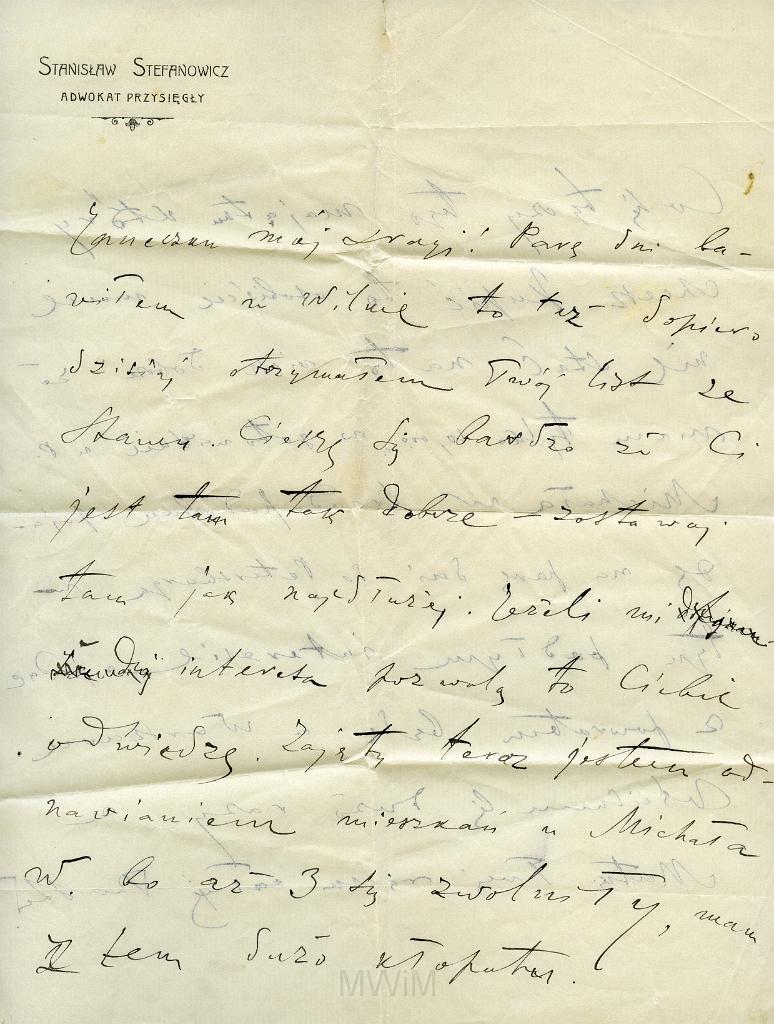 STANISŁAW STEFANOWICZ
ADWOKAT PRZYSIĘGŁY
mój Drogi! Parę dni ba-
wiłem w Wilnie to też dopiero
dzisiaj otrzymałem Twój list ze
Cieszę się bardzo że Ci
jest tam tak dobrze – zostawaj
tam jak najdłużej. Jeżeli mi
interesa pozwolą to Ciebie
odwiedzę. Zajęty teraz jestem od-
nawianiem mieszkań u Michała
W. bo aż 3 się zwolniły, mam
z tem dużo kłopotu.
MWiM